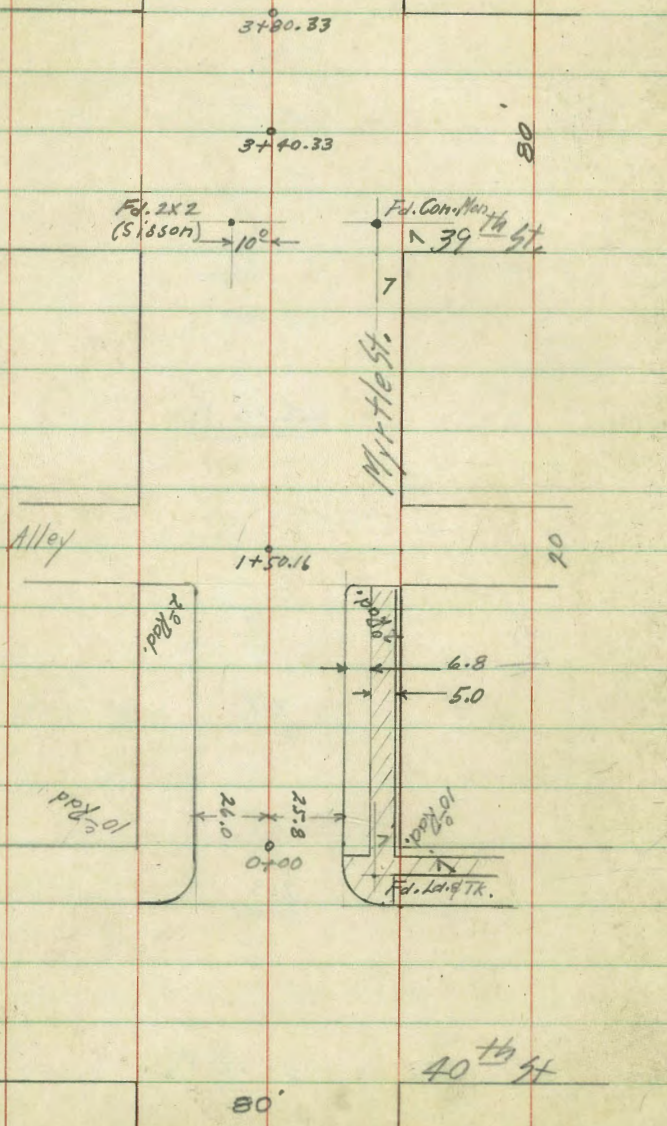 3+80.33
3+40.33
80'
Fd. 2x2
(Sisson)
10°
Fd. Con. Mon
7
39th St.
7
Myrtle St.
Alley
1+50.16
20
2° Rad.
2° Rad.
6.8
5.0
10° Rad
26.0
25.8
10° Rad.
0+00
7
7
Fd. Ld. & Tk.
40th St
80'